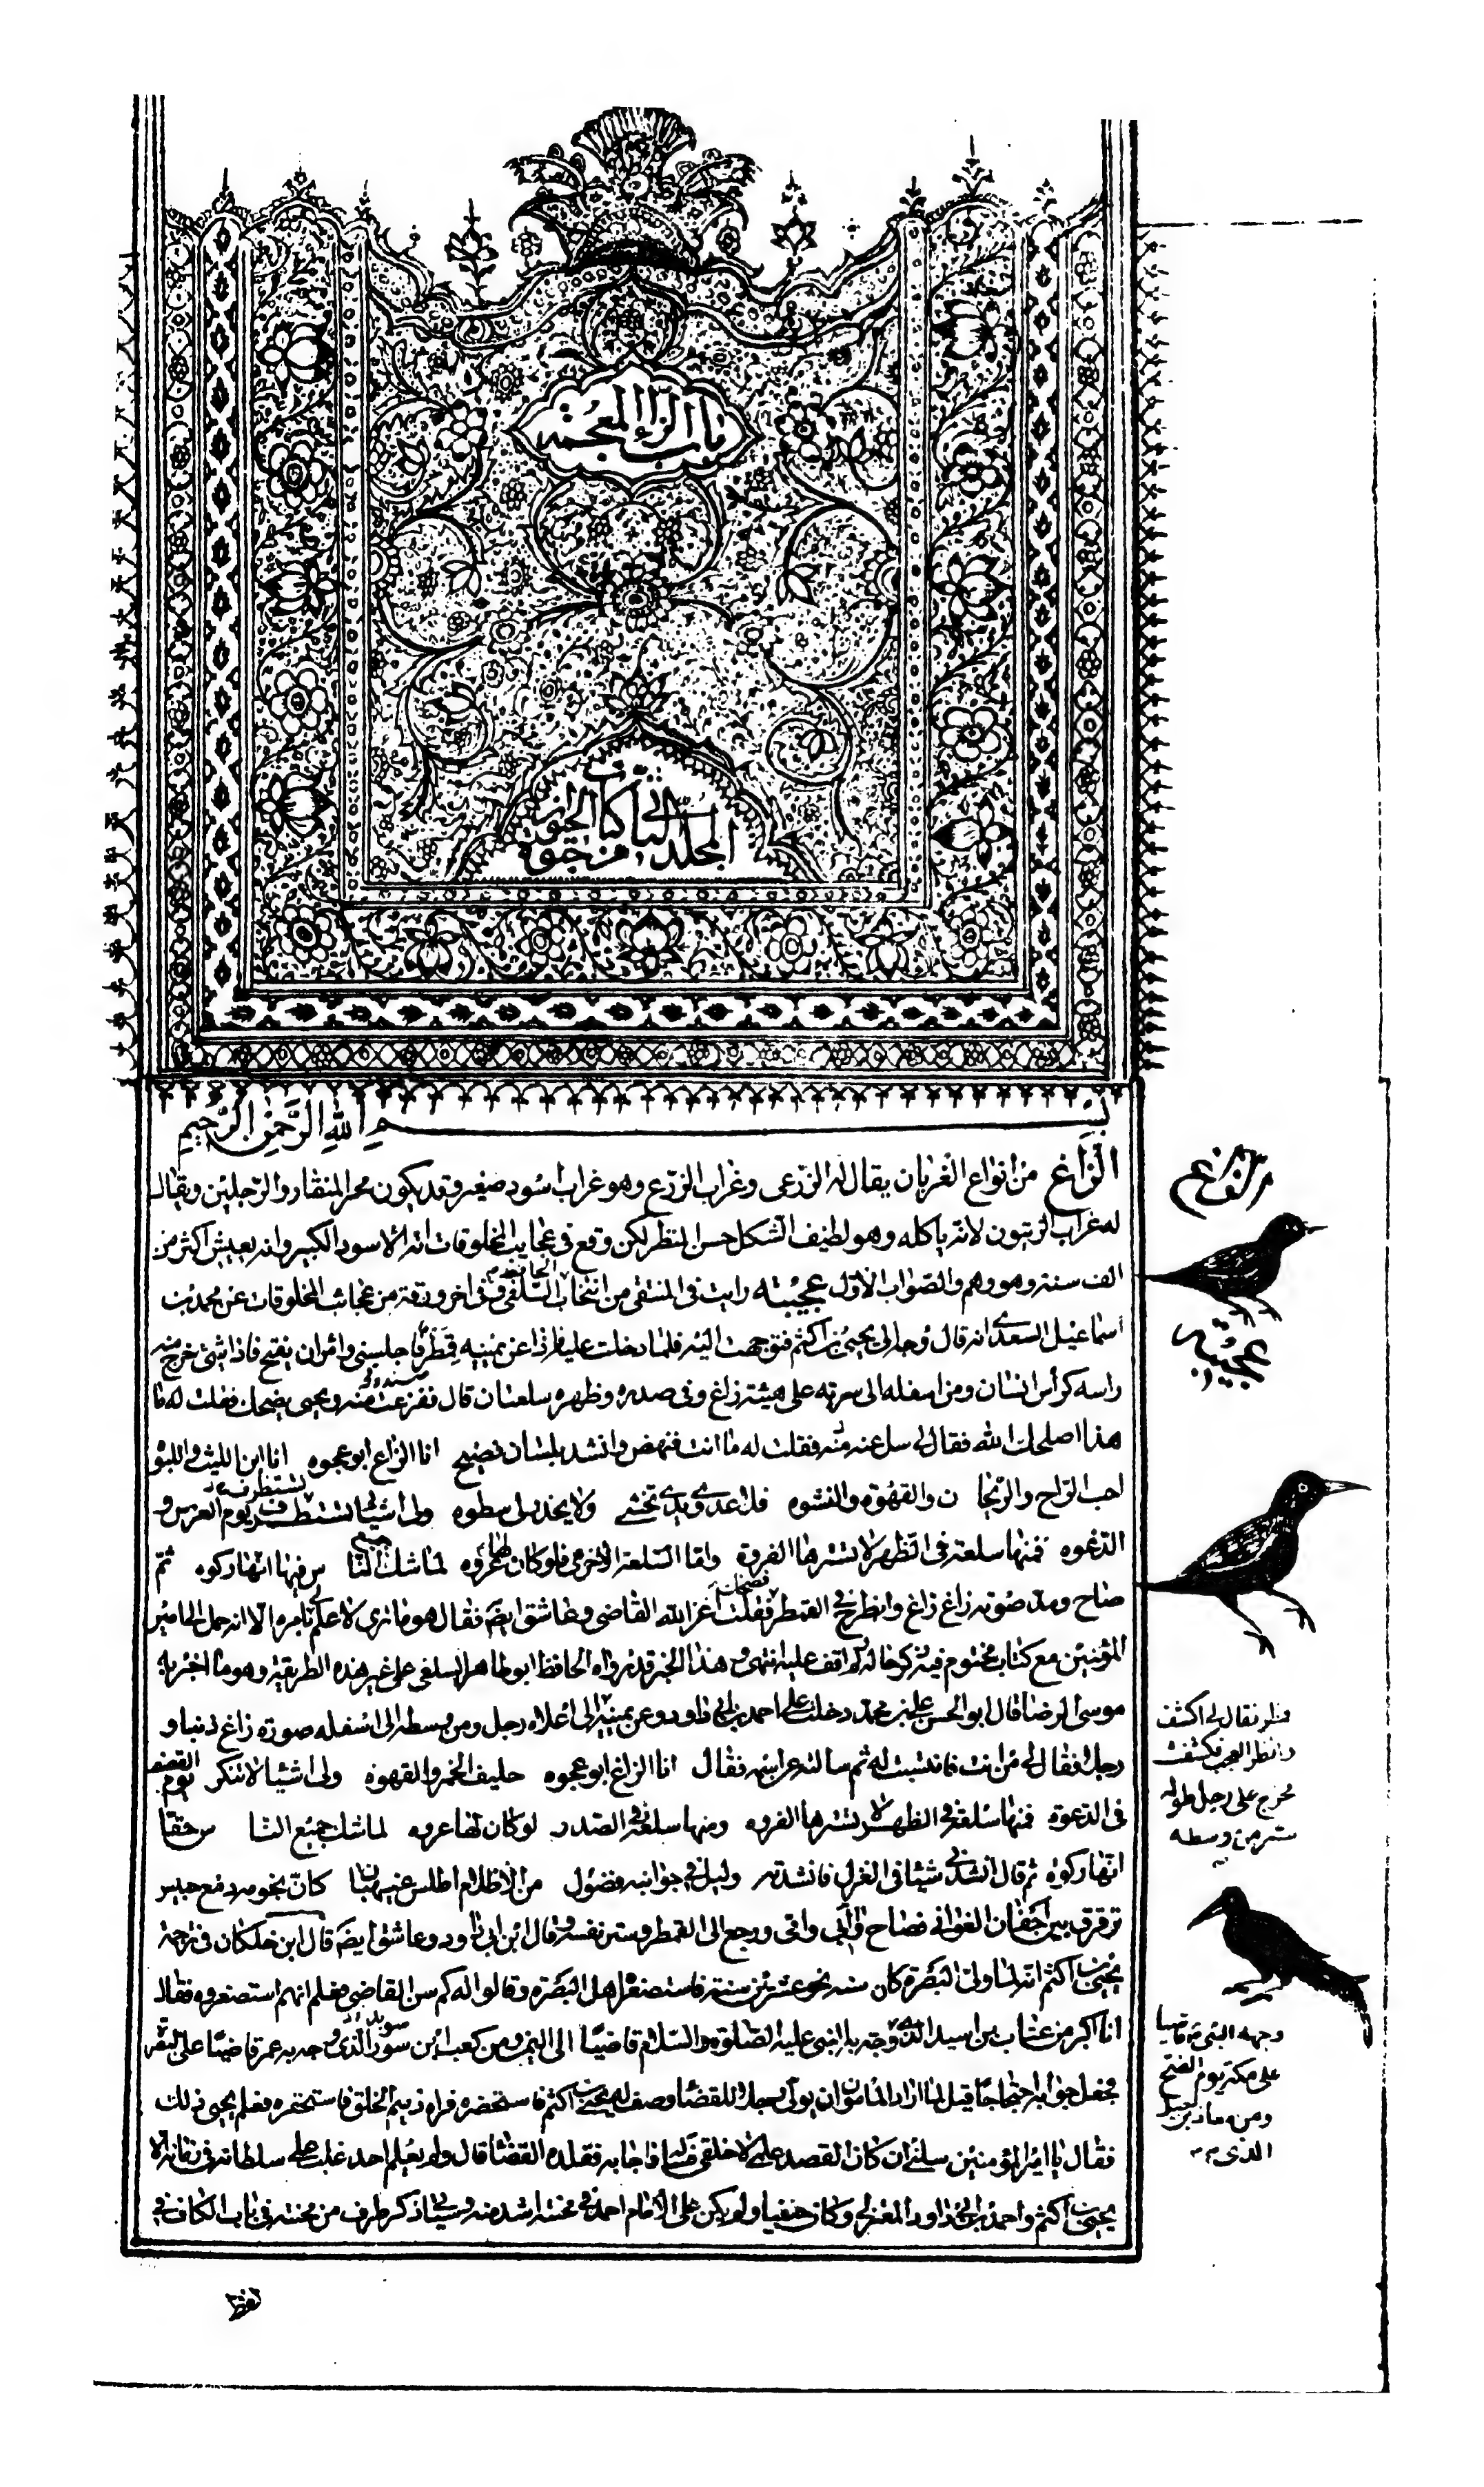 باب الزاء المعجمة
المجلد الثانى من كتاب حيوة الحيوان
بسم الله الرحمن الرحيم
الزاغ من انواع الغربان يقال له الزرعى وغراب الزرع وهو غراب اسود صغير وقد يكون محمر المنقار والرجلين ويقال
له غراب الزيتون لانه ياكله وهو لطيف الشكل حسن المنظر لكن وقع فى عجايب المخلوقات انه الاسود الكبير وانه يعيش اكثر من
الف سنة وهو وهم والصواب الاول عجيبة رايت فى المنتقى من انتخاب الحافظ السلفى وفى اخر ورقة من عجائب المخلوقات عن محمد بن
اسماعيل السعدى انه قال وجه الى يحيى بن اكثم فتوجهت اليه فلما دخلت عليه فاذا عن يمينه قمطر فاجلسنى وامر ان يفتح فاذا شئ خرج منه
راسه كراس انسان ومن اسفله الى سرته على هيئة زاغ وفى صدره وظهره سلعتان قال ففزعت منه ويحيى يضحك فقلت له ما
هذا اصلحك الله فقال لى سل عنه منه فقلت له ما انت فنهض وانشد بلسان فصيح انا الزاغ ابو عجوه انا ابن الليث واللبوه
احب الراح والريحا ن والقهوة والنشوه فلا عدوى يدى تخشى ولا يحذر لى سطوه ولى اشيا تستظرف يوم العرس و
الدعوه فمنها سلعة فى الظهر لا تسترها الفروة واما السلعة الاخرى فلو كان لها عروه لما شك جميع النا س فيها انها ركوه ثم
صاح ومد صوته زاغ زاغ وانطرح فى القمطر فقلت اعز الله القاضى وعاشق ايضا فقال هو ما ترى لا علم لى بامره الا انه حمل الى امير
المؤمنين مع كتاب مختوم فيه ذكر حاله لم اقف عليه انتهى وهذا الخبر قد رواه الحافظ ابو طاهر السلفى على غير هذه الطريقة وهو ما اخبر به
موسى الرضا قال قال ابو الحسن على بن محمد دخلت على احمد بن ابى داود وعن يمينه
رجل فقال لى من انت فانتسبت له ثم سالته عن اسمه فقال انا الزاغ ابو عجوه حليف الخمر والقهوه ولى اشيا لا تنكر يوم القصف
فى الدعوة فمنها سلعة فى الظهر لا تسترها الفروه ومنها سلعة فى الصدر لو كان لها عروه لما شك جميع النا س حقا
انها ركوه ثم قال انشدنى شيئا فى الغزل فانشدته وليل فى جوانبه فضول من الاظلام اطلس غيهبان كان نجومه دمع حبيس
ترقرق بين اجفان الغوانى فصاح وا ابى وا امى ورجع الى القمطر وستر نفسه فقال ابن ابى داود وعاشق ايضا قال ابن خلكان فى ترجمة
يحيى بن اكثم انه لما ولى البصرة كان سنه نحو عشرين سنة فاستصغره اهل البصرة وقالوا له كم سن القاضى فعلم انهم استصغروه فقال
انا اكبر من عتاب بن اسيد الذى وجه به النبى عليه الصلوة والسلام قاضيا الى اليمن ومن كعب ابن سور الذى وجه به عمر قاضيا على البصرة
فجعل جوابه احتجاجا قيل لما اراد المامون ان يولى رجلا للقضا وصف له يحيى بن اكثم فاستحضره فراه ذميم الخلق فاستحقره فعلم يحيى ذلك
فقال يا امير المؤمنين سلنى ان كان القصد علمى لا خلقى فساله فاجابه فقلده القضا قال ولم يعلم احد غلب على سلطانه فى زمانه الا
يحيى بن اكثم واحمد بن ابى داود المعتزلى وكان حنفيا ولم يكن على الامام احمد فى محنته اشد منه وسياتى ذكر طرف من محنته فى باب الكاف فى
لفظ
عجيبة
فقال لى اكشف
وانظر العجب فكشفت
فخرج على رجل طوله
شبر من وسطه
وجهه النبى قاضيا
على مكة يوم الفتح
ومن معاذ بن جبل
الذى